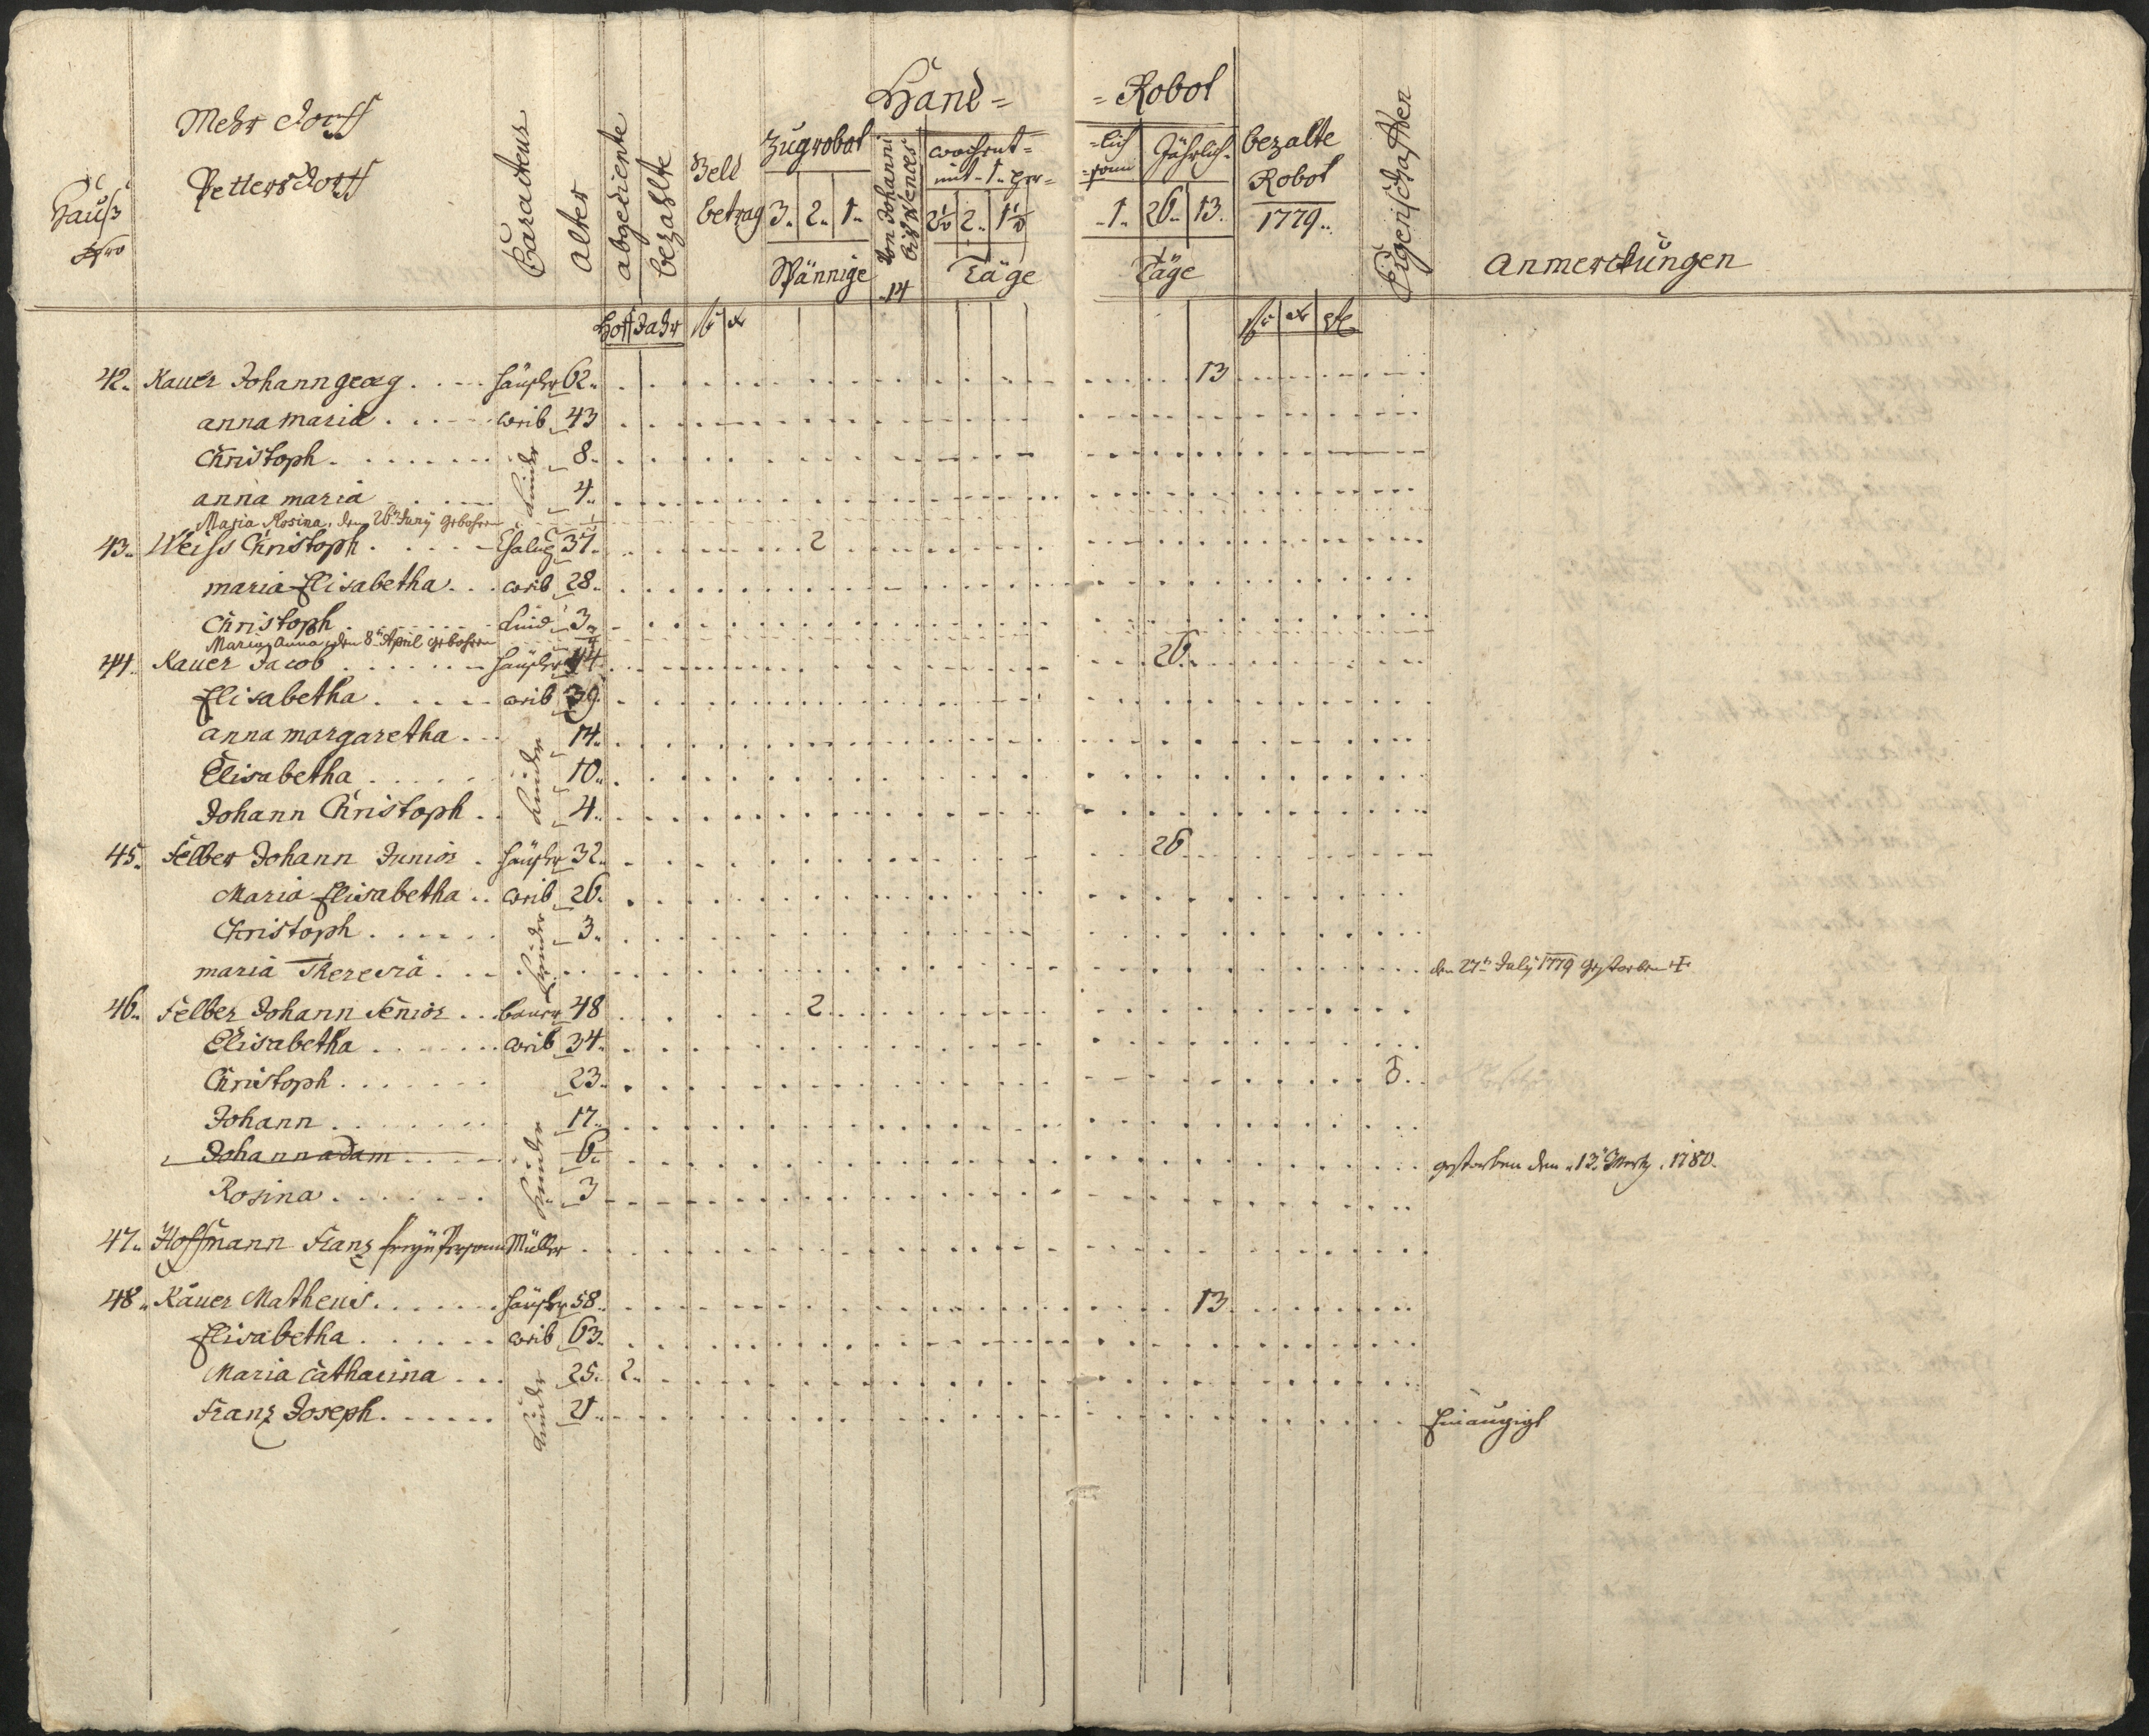 Hand= =Robot
Mehr Dorff
Pettersdorff
Hauß
Nro
Caracteur
Alter
abgediente
bezahlte
Hoff Jahr
Geld
betrag
fl xr
Zugrobot
3. 2. 1.
Spännige
Von Johanni
biß Wences
14
wochent= =lich
mit 1. Per= =sonn
2½ 2. 1½ 1.
Täge
Jährlich
26. 13.
Täge
bezalte
Robot
1779..
fl xr
Eigenschafften
Anmerckungen
42. Kauer Johann georg . . . . Häußler 62. 13
anna maria . . . . weib 43
Christoph . . . . Kinder 8.
anna maria . . . . 4.
Maria Rosina, den 26ten Juny gebohren
43. Weiss Christoph . . . . 37. 2
maria Elisabetha . . . weib 28.
Christoph . . . . Kind 3.
Maria Anna den 8ten April gebohren
44. Kauer Jacob . . . . Häußler 44. 26.
Elisabetha . . . . weib 39.
anna margaretha . . . Kinder 14.
Elisabetha . . . . 10.
Johann Christoph . . 4.
45. Felber Johann Junior . Häußler 32. 26
Maria Elisabetha . . weib 26.
Christoph . . . . Kinder 3.
maria Theresia . . . . den 27ten July 1779 gestorben
46. Felber Johann Senior . . bauer 48 2
Elisabetha . . . . weib 34.
Christoph . . . . 23. ♂.
Johann . . . . Kinder 17.
Johann adam . . . . 6. gestorben den 13. Mertz 1780.
Rosina . . . . 3
47. Hoffmann Franz Müller
48. Kauer Matheus . . . . Häußler 58. 13
Elisabetha . . . . weib 63.
Maria Catharina . . . Kinder 25. 2.
Franz Joseph . . . . 21. Einaugigt